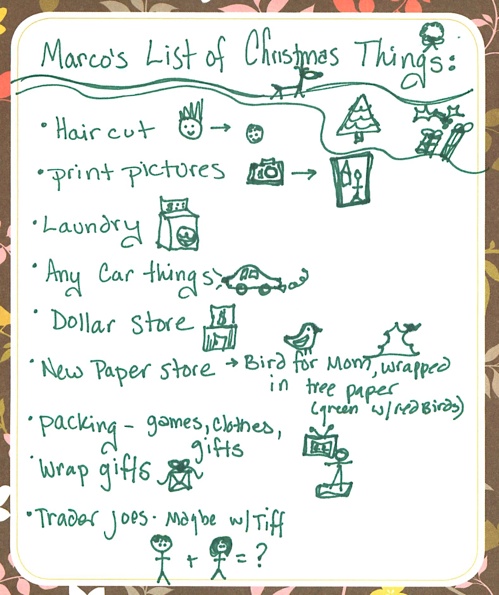 Marco's List of Christmas Things:
• Haircut →
• print pictures →
• Laundry
• Any Car things
• Dollar Store
• New Paper store → Bird for Mom, wrapped
in tree paper
(green w/red Birds)
• packing - games, clothes,
gifts
• Wrap gifts
• Trader Joes - Maybe w/Tiff
+ = ?